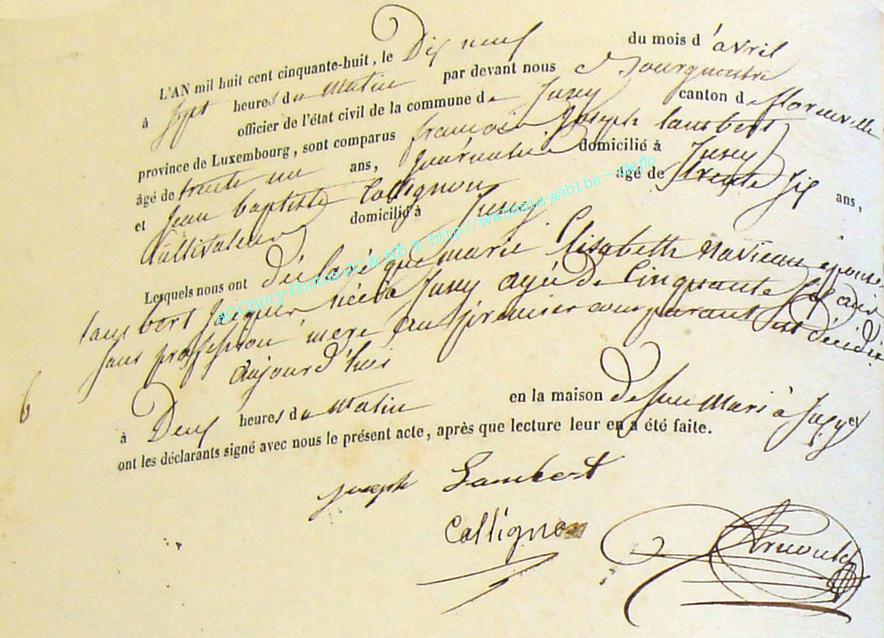 L'AN mil huit cent cinquante-huit, le Dix neuf du mois d'avril
à Sept heures du Matin par devant nous Bourgmestre
officier de l'état civil de la commune de Jusey canton de florenville
province de Luxembourg, sont comparus francois Joseph Lambert
âgé de trente un ans, Journalier domicilié à Jusey
et Jean baptiste Collignon âgé de trente Six ans,
Cultivateur domicilié à Jusey
Lesquels nous ont déclaré que marie Elisabeth épouse
Lambert Jacques née à Jusey agée de Cinquante ans
sans profession mere du premier comparant est décédée
aujourd'hui
6
à Deux heures du Matin en la maison de son Mari à Jusey et
ont les déclarants signé avec nous le présent acte, après que lecture leur en a été faite.
Joseph Lambert
Collignon